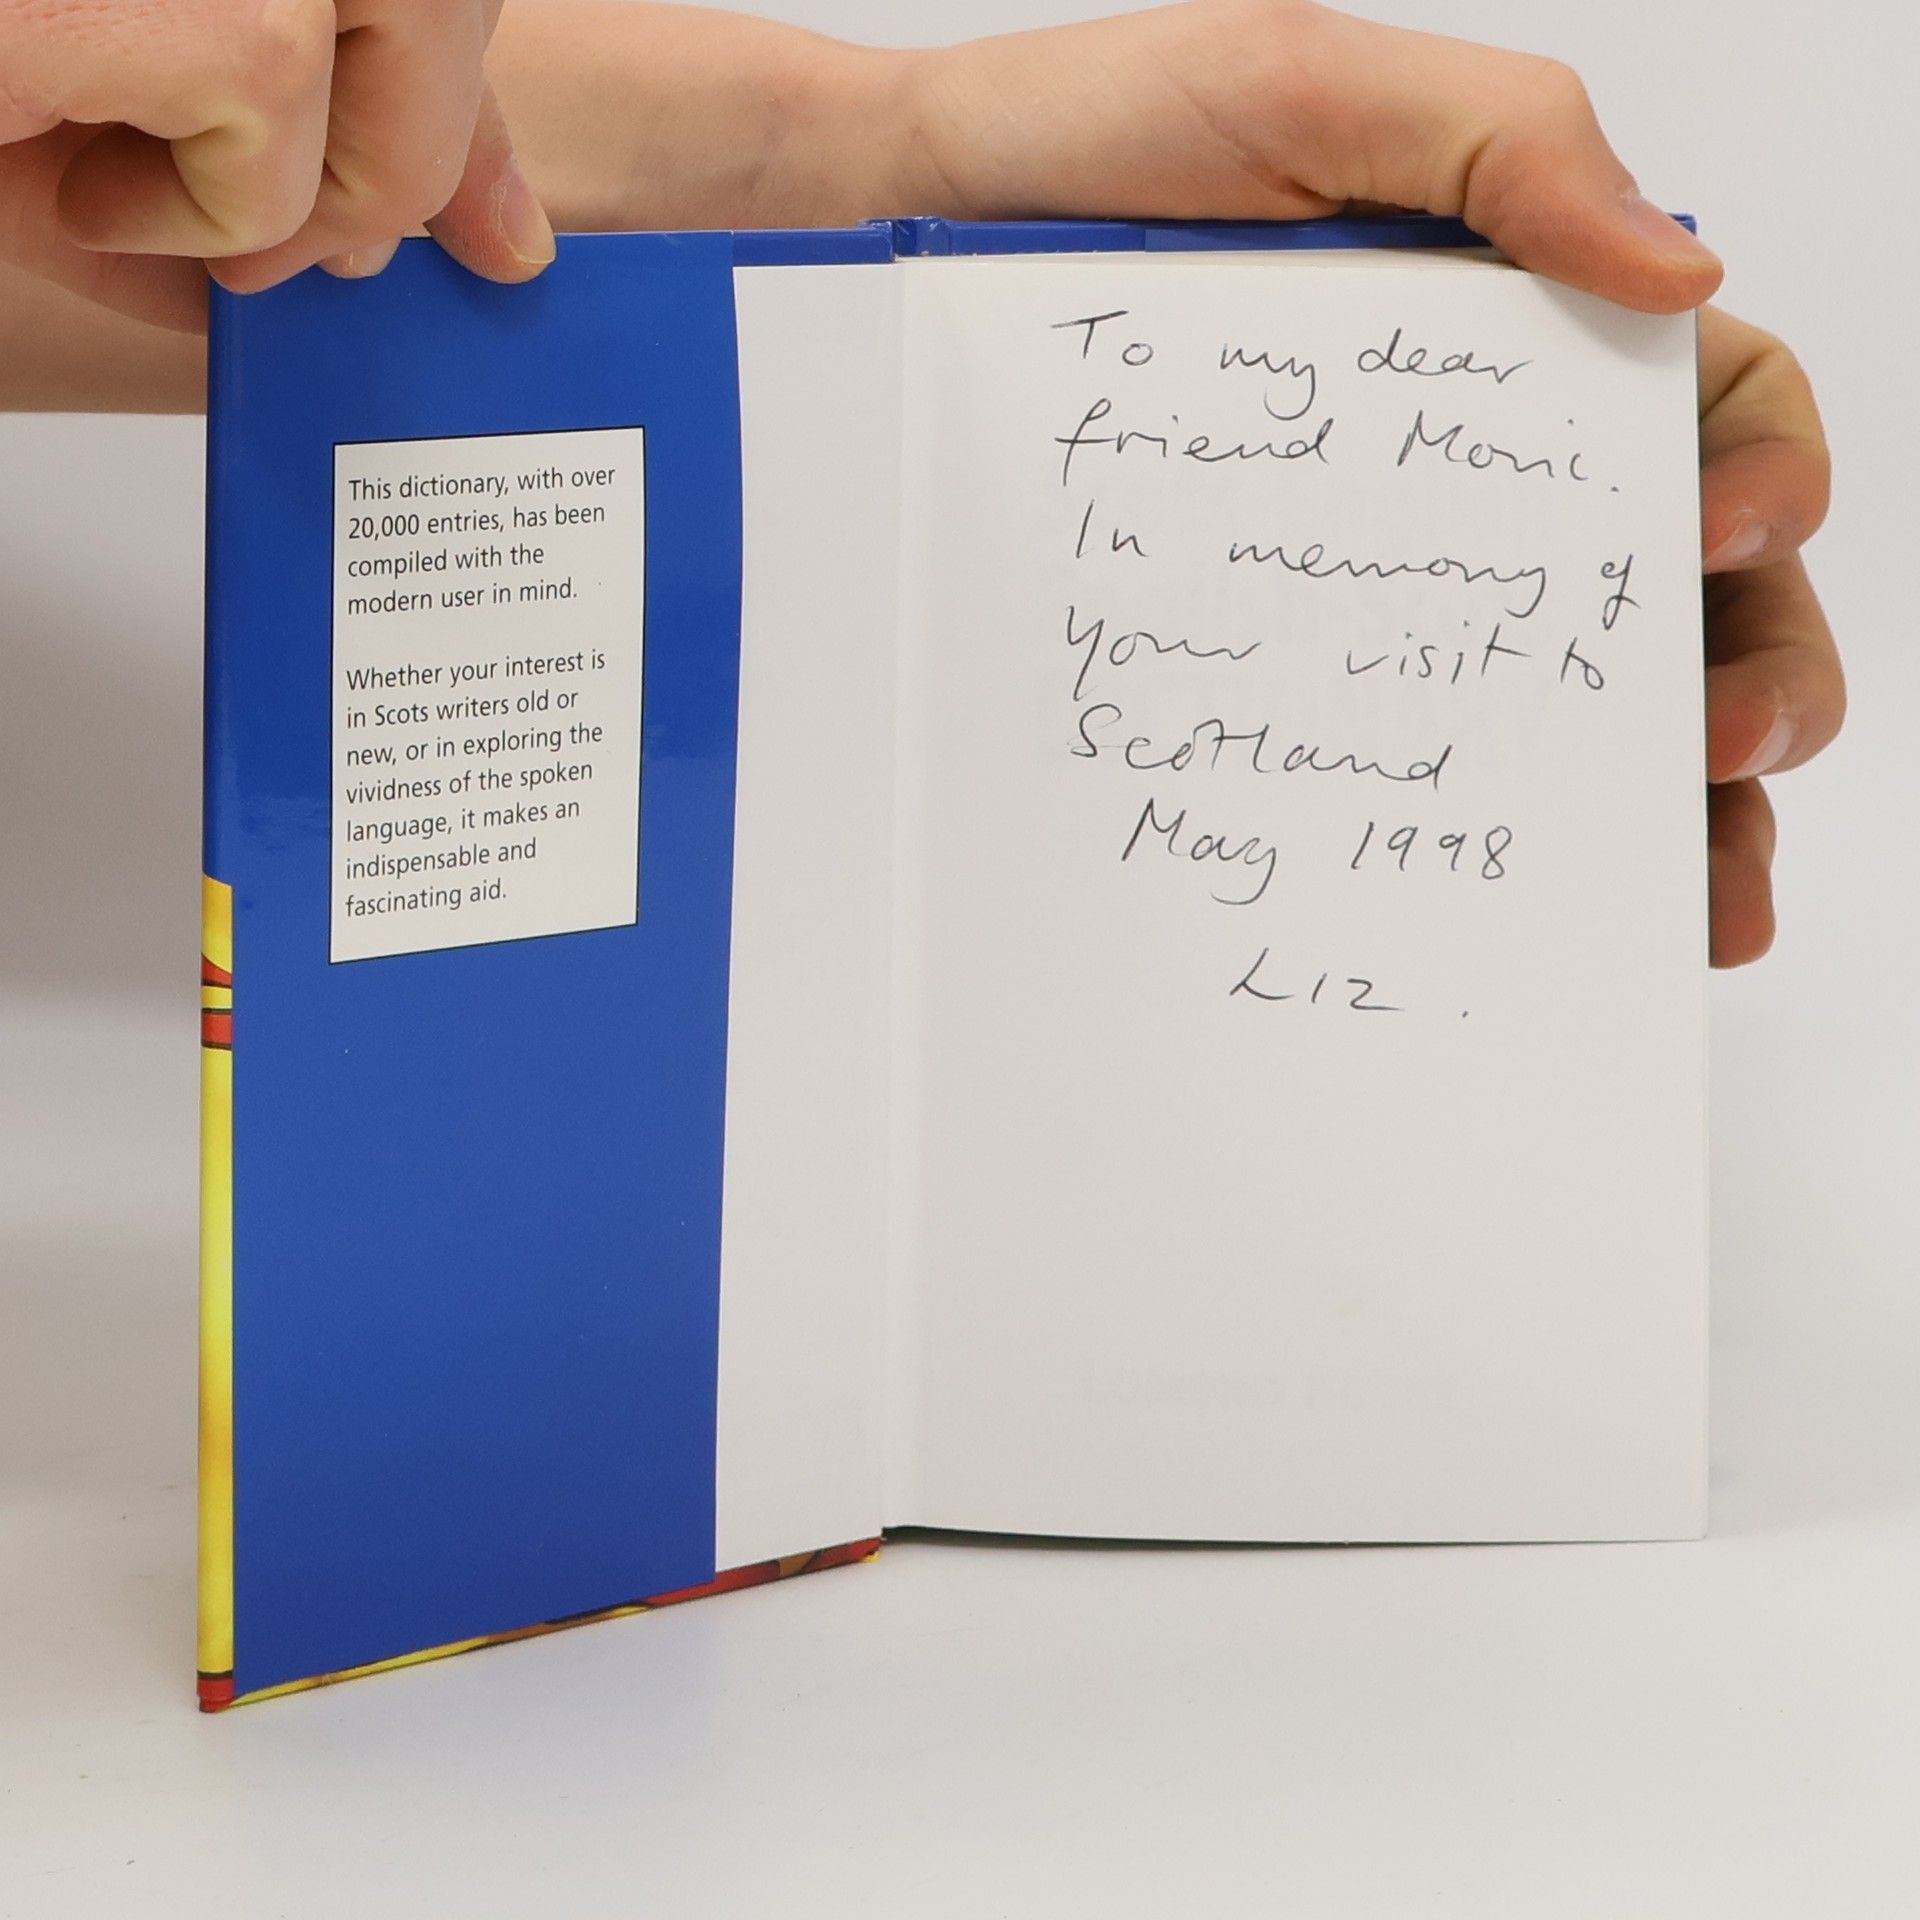 This dictionary, with over
20,000 entries, has been
compiled with the
modern user in mind.
Whether your interest is
in Scots writers old or
new, or in exploring the
vividness of the spoken
language, it makes an
indispensable and
fascinating aid.
To my dear
friend Monic.
In memory of
your visit to
Scotland
May 1998
Liz.